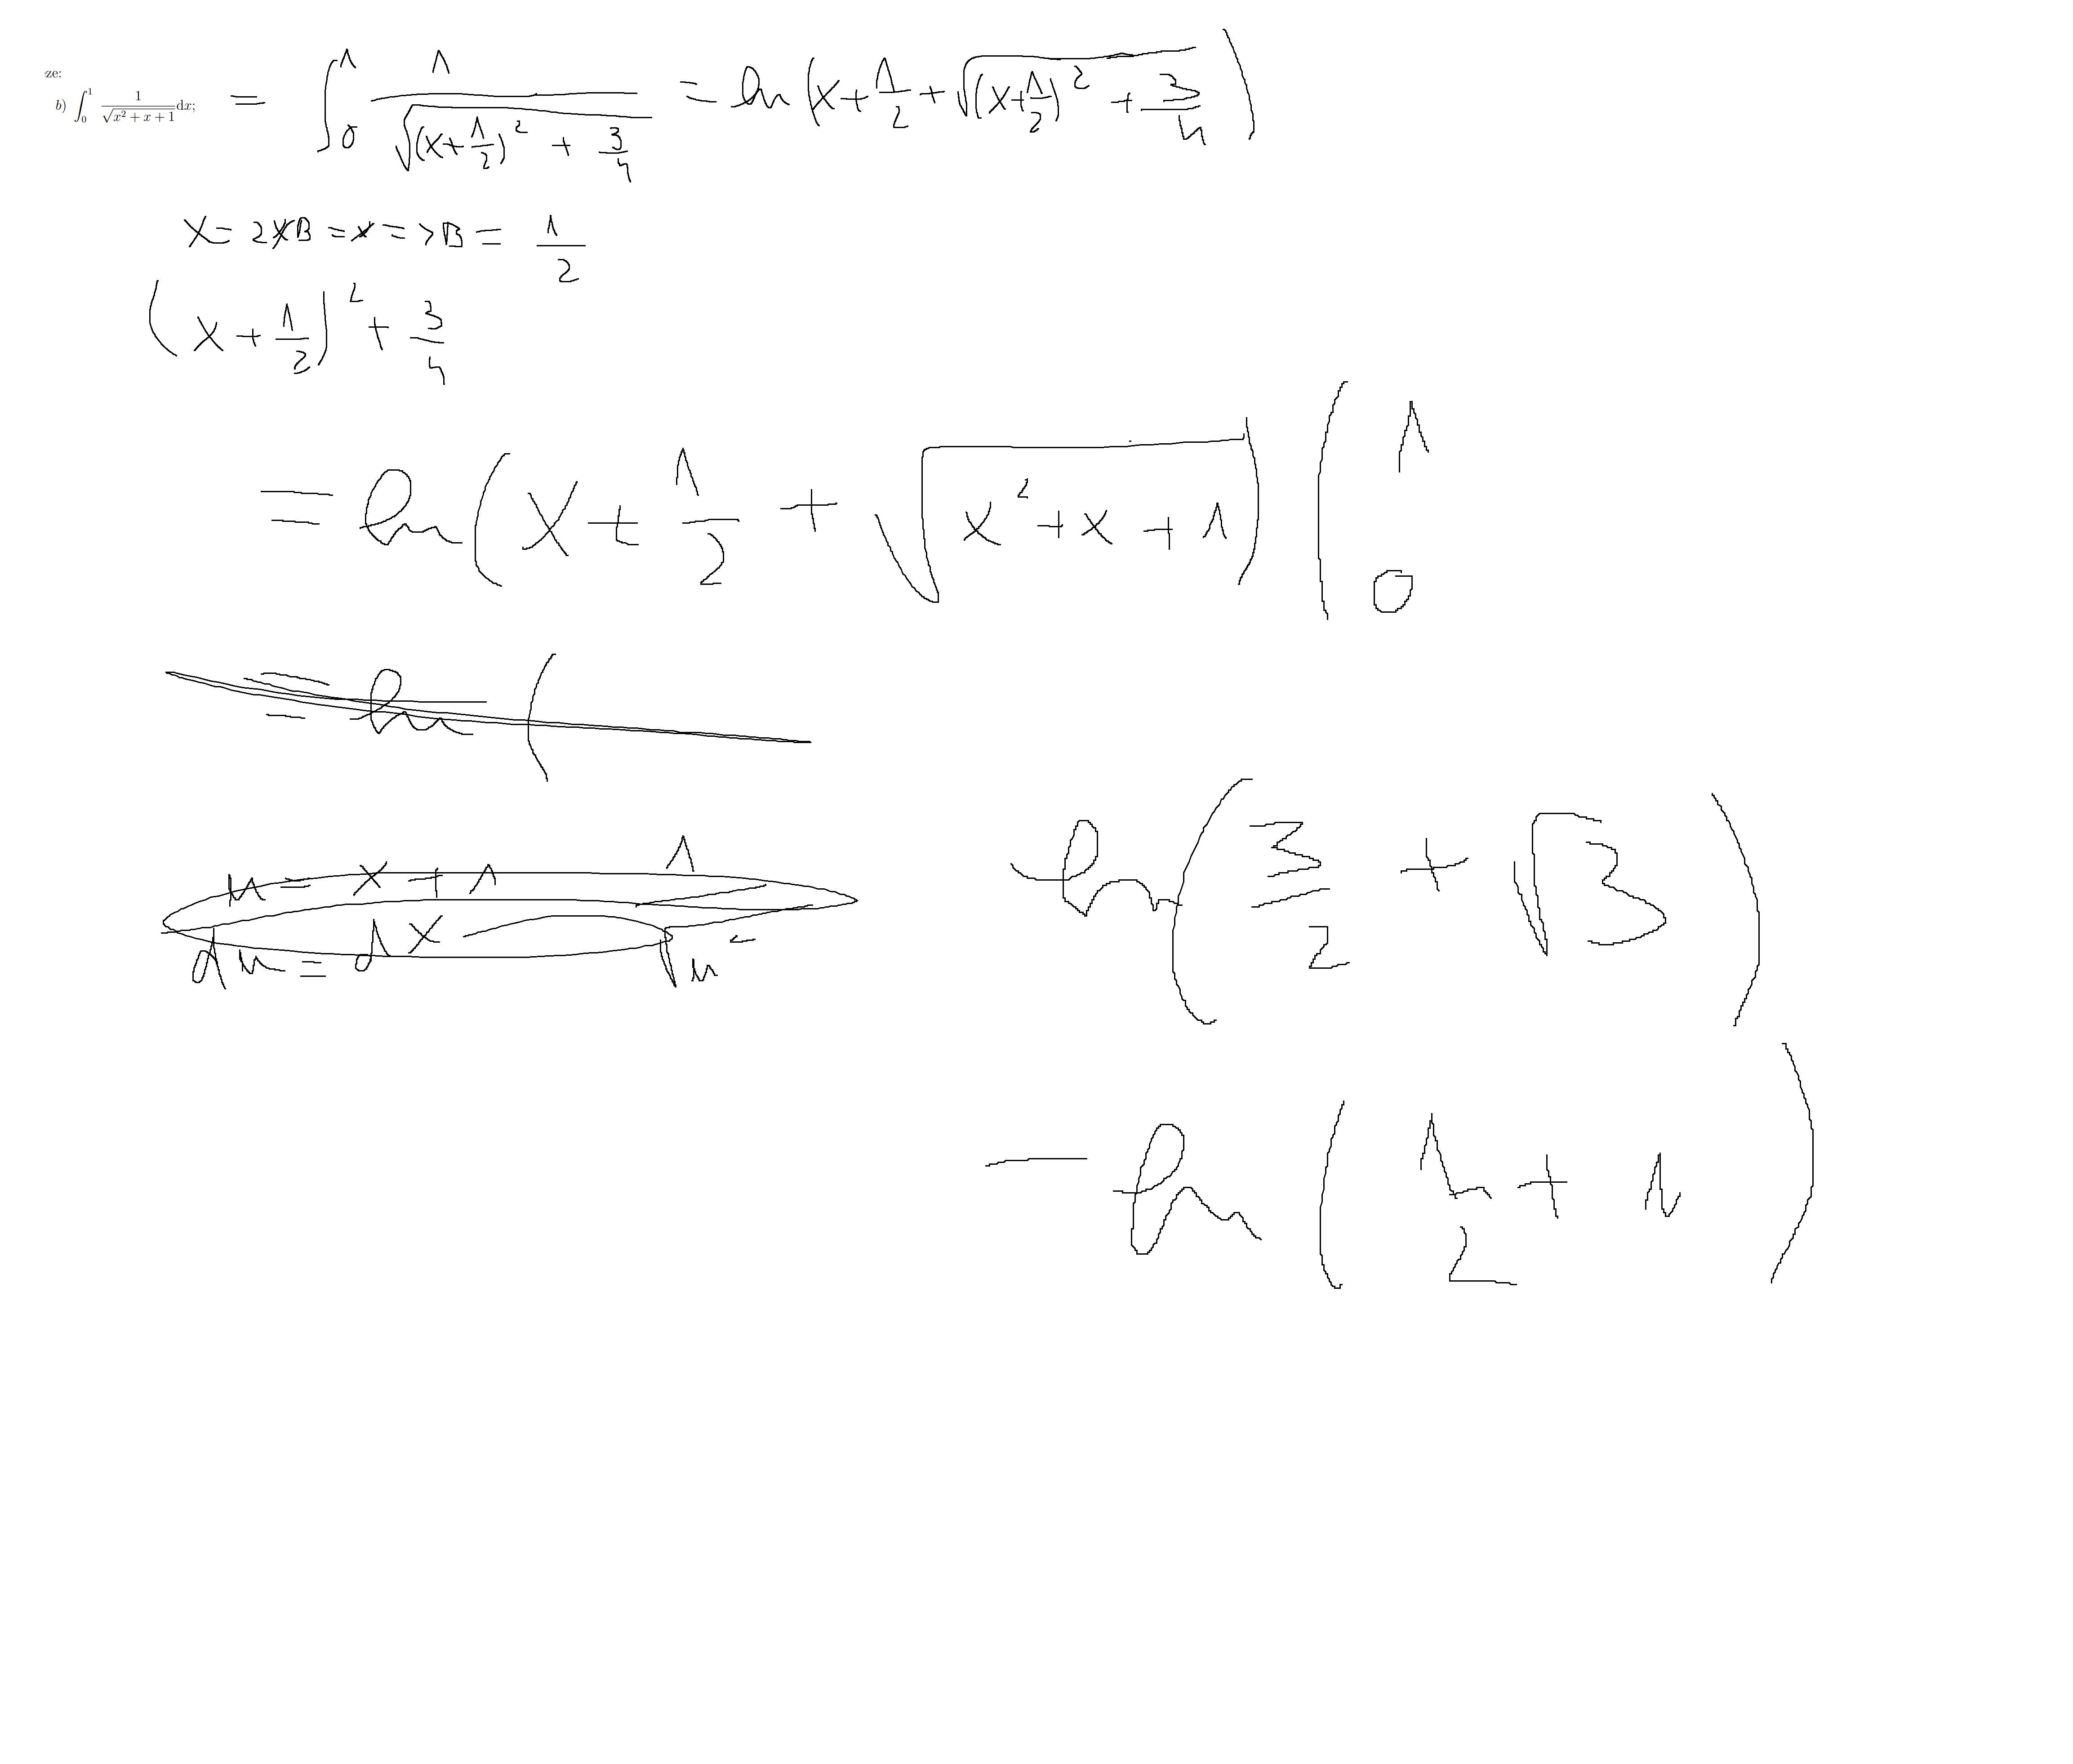 ze:
b) ∫₀¹ 1/√(x² + x + 1) dx; = ∫₀¹ 1/√((x+1/2)² + 3/4) = ln(x+1/2+√((x+1/2)² + 3/4))
x = 2xB = x => B = 1/2
(x + 1/2)² + 3/4
= ln(x + 1/2 + √(x² + x + 1)) ( 1 0
= ln (
u = x + 1
du = dx
1/√u
ln(3/2 + √3)
- ln(1/2 + 1)